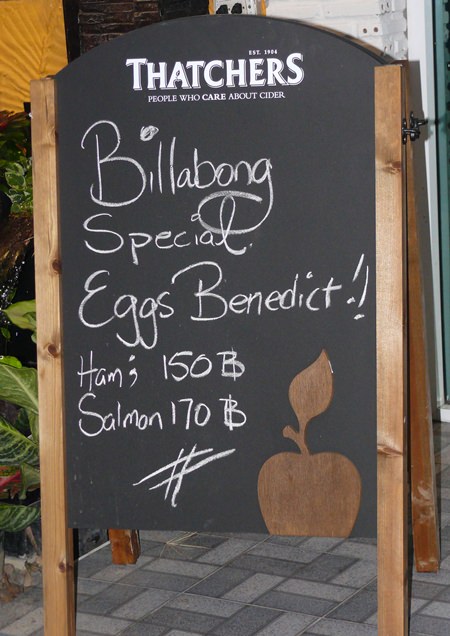 EST. 1904
THATCHERS
PEOPLE WHO CARE ABOUT CIDER
Billabong
Special.
Eggs Benedict!!
Ham; 150 ฿
Salmon 170 ฿